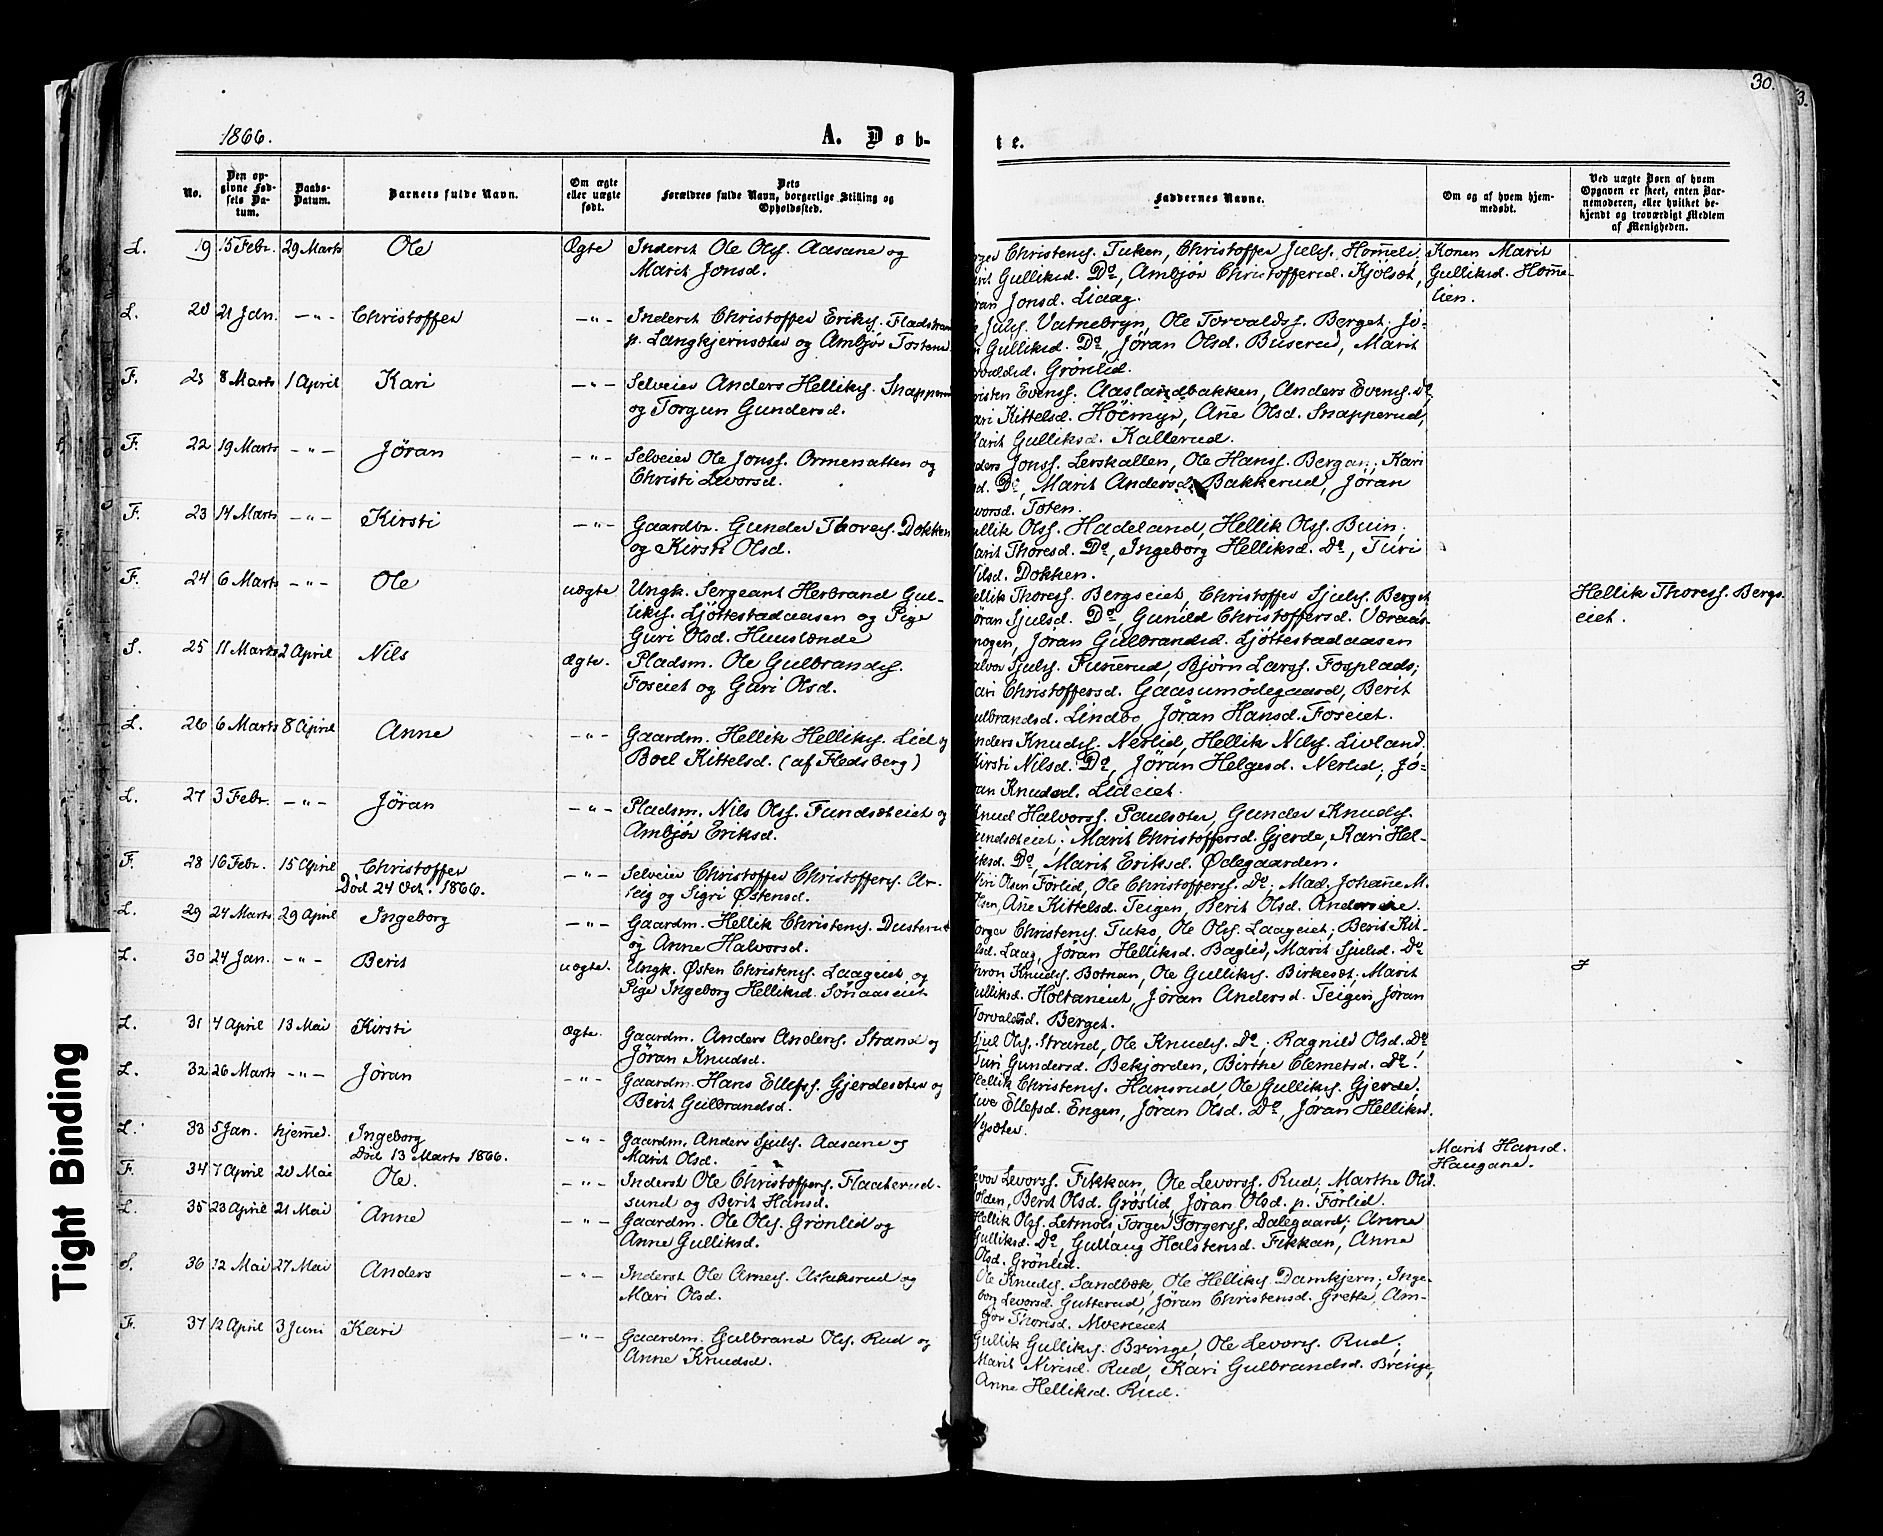 30.
3.
1866.
A. Døb-
te.
No.
Den op-
givne Fød-
sels Da-
tum.
Daabs-
Datum.
Barnets fulde Navn.
Om ægte
eller uægte
født.
Dets
Forældres fulde Navn, borgerlige Stilling og
Opholdssted.
Faddernes Navne.
Om og af hvem hjem-
medøbt.
Ved uægte Børn af hvem
Opgaven er skeet, enten Bar-
nemoderen, eller hvilket be-
kjendt og troværdigt Medlem
af Menigheden.
L. 19 15 Febr. 29 Marts Ole Ægte Inderst Ole Olss. Aasane og
Marit Jonsd.
Christens. Tuken, Christoffer Juls. Homeli,
Gulliksd. Do, Ambjør Christoffersd. Kjölset,
Jonsd. Liaag.
Konen Marit
Gulliksd. Home-
lien.
L. 20 21 Jan. -"- Christoffer -"- Inderst Christoffer Eriks. Fladstram
p. Langkjernsæter og Ambjør Tostens
Juls. Vatnebryn, Ole Torvaldss. Berget, Jö-
Gulliksd. Do, Jøran Olsd. Buserud, Marit
Grönlid.
F. 21 8 Marts 1 April Kari -"- Selveier Anders Helliks. Snapperu
og Torgun Gundersd.
Evenss. Aaslandbakken, Anders Evens. Do,
Kittelsd. Höimyr, Ane Olsd. Snapperud,
Gulliksd. Kallerud.
F. 22 19 Marts -"- Jøran -"- Selveier Ole Jonss. Ormenatten og
Christi Levorsd.
Jonss. Lerskallen, Ole Hanss. Bergan, Kari
Do, Marit Andersd. Bakkerud, Jøran
Toten.
F. 23 14 Marts -"- Kirsti -"- Gaardbr. Gunder Thores. Dokken
og Kirsti Olsd.
Olss. Hadeland, Hellik Olss. Buin,
Thoresd. Do, Ingeborg Helliksd. Do, Turi
Dokken.
F. 24 6 Marts -"- Ole uægte Ungk. Sergeant Herbrand Gul-
liks. Ljöttestadaasen og Pige
Guri Olsd. Huuslænde
Thoress. Bergseiet, Christoffer Sjuls. Berget
Sjulsd. Do, Gunild Christoffersd. Væraas-
mogen, Jøran Gulbrandsd. Ljöttestadaasen
Hellik Thoress. Bergs-
eiet.
S. 25 11 Marts 2 April Nils Ægte. Pladsm. Ole Gulbrands.
Foseiet og Guri Olsd.
Sjuls. Funerud, Bjørn Larss. Fosplads;
Christoffersd. Gaasumödegaard, Berit
Gulbrandsd. Lindbo, Jøran Hansd. Foseiet.
L. 26 6 Marts 8 April Anne -"- Gaardm. Hellik Helliks. Lid og
Boel Kittelsd. (af Fledsberg)
Anders Knuds. Nerlid, Hellik Nils. Livland.
Kirsti Nilsd. Do, Jøran Helgesd. Nerlid; Jö-
ran Knudsd. Lideiet.
L. 27 3 Febr. -"- Jøran -"- Pladsm. Nils Olss. Fundsæteiet og
Ambjör Eriksd.
Knud Halvorss. Paulsæter, Gunder Knuds.
Fundsæteiet; Marit Christoffersd. Gjerde, Kari Hel-
liksd. Do, Marit Eriksd. Ødegaarden.
F. 28 16 Febr. 15 April Christoffer -"- Selveier Christoffer Christoffers. Ar-
Död 24 Oct. 1866.
og Sigri Østensd.
Olsen Förlid, Ole Christoffers. Do; Mad. Johane M.
Ane Kittelsd. Teigen, Berit Olsd.
L. 29 24 Marts 29 April Ingeborg -"- Gaardm. Hellik Christens. Dusterud
og Anne Halvorsd.
Torger Christens. Tuko, Ole Ols. Laageiet; Berit Kit-
telsd. Laag, Jøran Helliksd. Baglid, Marit Sjulsd. Do
L. 30 24 Jan. -"- Berit uægte. Ungk. Østen Christens. Laageiet og
Pige Ingeborg Helliksd. Sönaaseiet
Thron Knuds. Botnan, Ole Gulliks. Birkesæt, Marit
Gulliksd. Holtaneiet, Jøran Andersd. Teigen, Jøran
Torvaldsd. Berget.
L. 31 4 April 13 Mai Kirsti Ægte. Gaardm. Anders Anders. Strand og
Jøran Knudsd.
Sjul Ols. Strand, Ole Knuds. Do; Ragnild Olsd. Do
Turi Gundersd. Bekjorden, Birthe Clemetsd. Do.
L. 32 26 Marts -"- Jøran -"- Gaardm. Hans Ellefss. Gjerdesæter og
Berit Gulbrandsd.
Hellik Christens. Hansrud, Ole Gulliks. Gjerde;
Live Ellefsd. Engen, Jøran Olsd. Do, Jøran Helliksd.
Nysæter.
L. 33 5 Jan. hjemmed. Ingeborg -"- Gaardm. Anders Sjuls. Aasane og
Död 13 Marts 1866.
Marit Olsd.
Marit Hansd.
Haugane.
F. 34 7 April 20 Mai Ole. -"- Inderst Ole Christoffers. Flaaterud-
sund og Berit Hansd.
Levor Levorss. Fikkan, Ole Levorss. Rud, Marthe Olsd.
Berit Olsd. Gröslid, Jøran Olsd. p. Förlid.
L. 35 23 April 21 Mai Anne -"- Gaardm. Ole Ols. Grönlid og
Anne Gulliksd.
Hellik Olss. Letmoli, Torger Torgerss. Dalegaard; Anne
Gulliksd. Do, Gullaug Halstensd. Fikkan, Anne
Olsd. Grönlid.
S. 36 12 Mai 27 Mai Anders -"- Inderst Ole Arnes. Aslaksrud og
Mari Olsd.
Ole Knuds. Sandbæk, Ole Helliks. Damkjern; Inge-
borg Levorsd. Gutterud, Jøran Christensd. Grette, Am-
jör Thorisd. Moeneiet
F. 37 12 April 3 Juni Kari -"- Gaardm. Gulbrand Ols. Rud og
Anne Knudsd.
Gullik Gulliks. Bringe, Ole Levors. Rud;
Marit Nirisd. Rud, Kari Gulbrandsd. Bringe,
Anne Helliksd. Rud.
Tight Binding